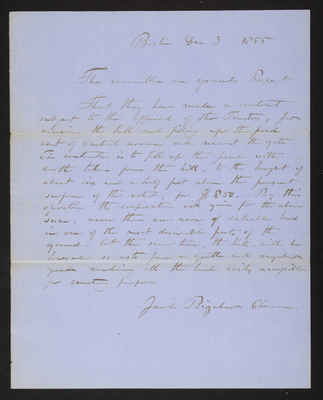 Boston Dec 3 1855
The committee on grounds Report
That they have made a contract
subject to the approval of the Trustees, for
removing the hill and filling up the pond
east of Central avenue and nearest the gate.
The contractor is to fill up the pond with
earth taken from the hill, to the height of
about one and a half feet above the present
surface of the water, for $850. By this
operation the corporation will gain for the above
sum, more than an acre of valuable land
in one of the most desirable parts of the
ground. At the same time, the hill will be
to a gentle and
making all the land easily accessible
for purposes
Jacob Bigelow Chairman